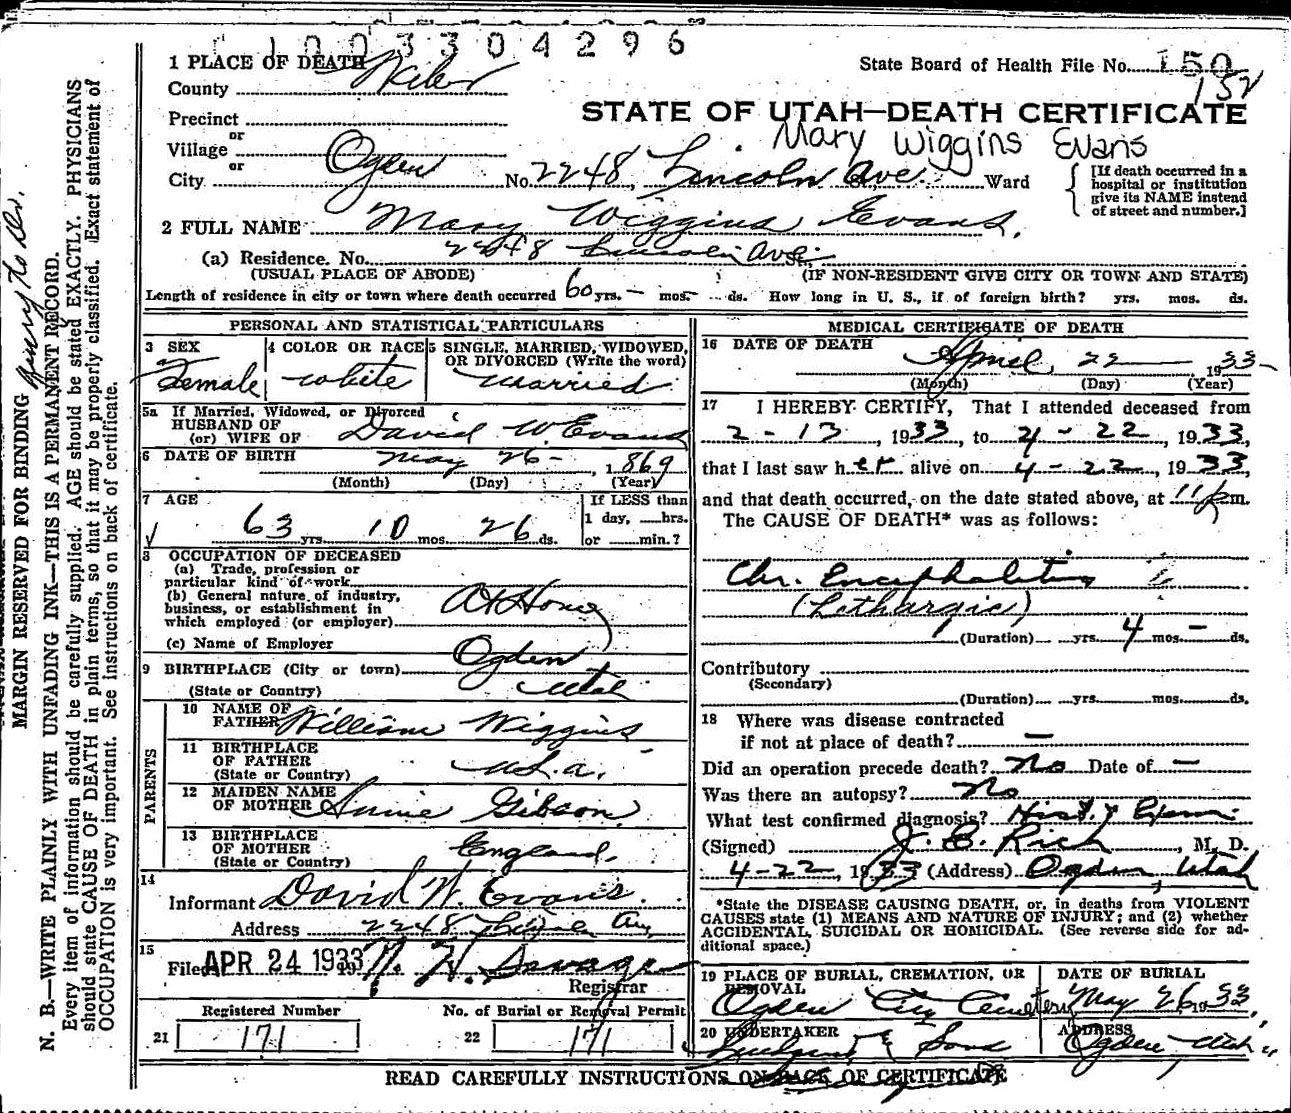 1003304296
1 PLACE OF DEATH
County Weber
State Board of Health File No. 150
152
STATE OF UTAH—DEATH CERTIFICATE
Mary Wiggins Evans
Precinct
or
Village
or
City Ogden No. 2248, Lincoln Ave. Ward
[If death occurred in a
hospital or institution
give its NAME instead
of street and number.]
2 FULL NAME Mary Wiggins Evans.
(a) Residence. No. 2248 Lincoln Ave
(USUAL PLACE OF ABODE) (IF NON-RESIDENT GIVE CITY OR TOWN AND STATE)
Length of residence in city or town where death occurred 60 yrs. — mos. - ds. How long in U. S., if of foreign birth? yrs. mos. ds.
PERSONAL AND STATISTICAL PARTICULARS
3 SEX
Female
4 COLOR OR RACE
white
5 SINGLE, MARRIED, WIDOWED,
OR DIVORCED (Write the word)
married
5a If Married, Widowed, or Divorced
HUSBAND OF
(or) WIFE OF David W. Evans
6 DATE OF BIRTH May 26-, 1869
(Month) (Day) (Year)
7 AGE
63 yrs. 10 mos. 26 ds.
If LESS than
1 day, ___hrs.
or ___min.?
8 OCCUPATION OF DECEASED
(a) Trade, profession or
particular kind of work
(b) General nature of industry,
business, or establishment in
which employed (or employer) At Home
(c) Name of Employer
9 BIRTHPLACE (City or town) Ogden
(State or Country) Utah
PARENTS
10 NAME OF
FATHER William Wiggins
11 BIRTHPLACE
OF FATHER U.S.A.
(State or Country)
12 MAIDEN NAME
OF MOTHER Annie Gibson
13 BIRTHPLACE
OF MOTHER England.
(State or Country)
14
Informant David W. Evans.
Address 2248 Lincoln Ave
15
Filed APR 24 1933 19 Savage
Registrar
Registered Number
21 171
No. of Burial or Removal Permit
22 171
MEDICAL CERTIFICATE OF DEATH
16 DATE OF DEATH April 22 1933
(Month) (Day) (Year)
17 I HEREBY CERTIFY, That I attended deceased from
2-13, 1933, to 4-22, 1933,
that I last saw her alive on 4-22, 1933,
and that death occurred, on the date stated above, at 11 p m.
The CAUSE OF DEATH* was as follows:
Chr. Encephalitis
(Lethargic)
(Duration) yrs. 4 mos. - ds.
Contributory
(Secondary)
(Duration) yrs. mos. ds.
18 Where was disease contracted
if not at place of death? —
Did an operation precede death? No Date of —
Was there an autopsy? No
What test confirmed diagnosis? Hist. & Exam.
(Signed) J. E. Rich, M. D.
4-22, 1933 (Address) Ogden, Utah
*State the DISEASE CAUSING DEATH, or, in deaths from VIOLENT
CAUSES state (1) MEANS AND NATURE OF INJURY; and (2) whether
ACCIDENTAL, SUICIDAL OR HOMICIDAL. (See reverse side for ad-
ditional space.)
19 PLACE OF BURIAL, CREMATION, OR
REMOVAL
Ogden City Cemetery
DATE OF BURIAL
May 26 1933
20 UNDERTAKER
Lindquist & Sons
ADDRESS
Ogden, Utah
READ CAREFULLY INSTRUCTIONS ON BACK OF CERTIFICATE
MARGIN RESERVED FOR BINDING
N. B.—WRITE PLAINLY WITH UNFADING INK—THIS IS A PERMANENT RECORD.
Every item of information should be carefully supplied. AGE should be stated EXACTLY. PHYSICIANS
should state CAUSE OF DEATH in plain terms, so that it may be properly classified. Exact statement of
OCCUPATION is very important. See instructions on back of certificate.